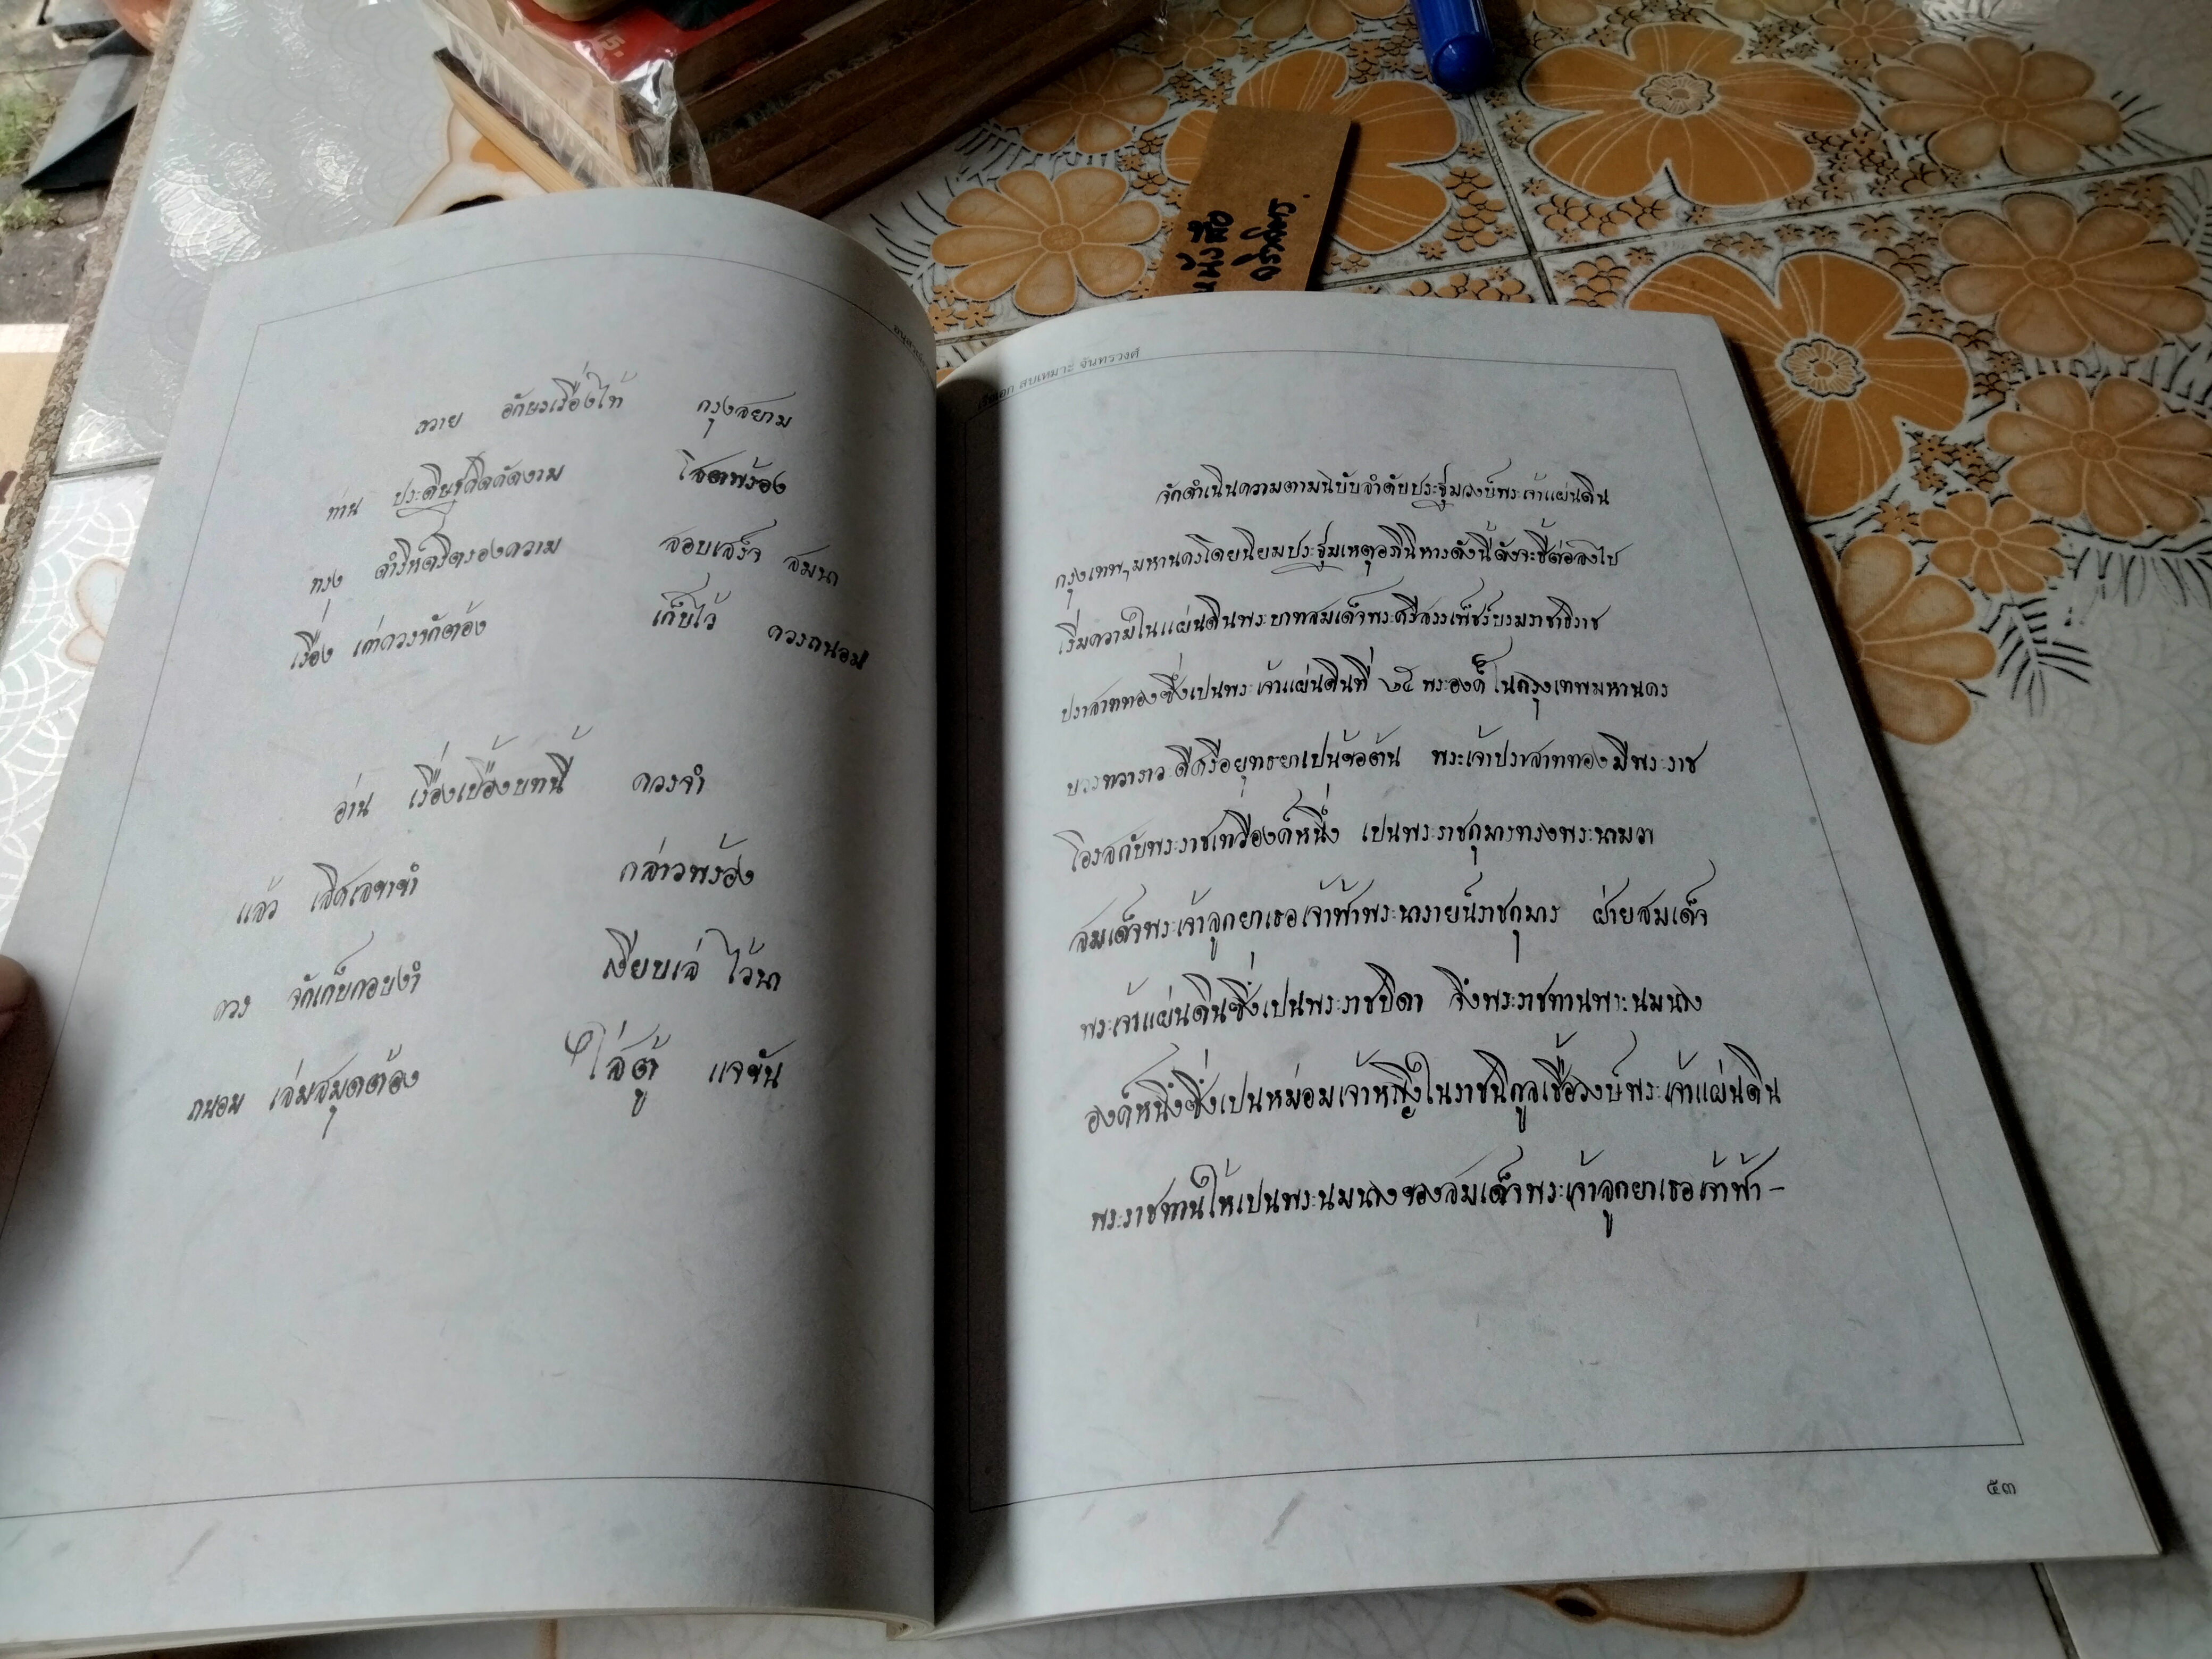 ถวาย อักษรเรื่องไท้ กรุงสยาม
ท่าน ประดิษฐคิดคัดงาม โสตพร้อง
ทรง ดำริห์ตริตรองความ สอบเสร็จ สมนา
เรื่อง เก่าควรก็ต้อง เก็บไว้ ควรถนอม
อ่าน เรื่องเบื้องบทนี้ ควรจำ
แล้ว เลิศเลขาขำ กล่าวพร้อง
ควร จักเก็บกอบงำ เงียบเล่ ไว้นา
ถนอม เล่มสมุดต้อง ใส่ตู้ แจขัน
สบเหมาะ จันทรวงศ์
จักดำเนินความตามนิบับลำดับประฐมวงษ์พระเจ้าแผ่นดิน
กรุงเทพฯมหานครโดยนิยมประฐมเหตุอภินิหารดังนี้ดังจะชี้ต่อลงไป
เริ่มความในแผ่นดินพระบาทสมเด็จพระศรีสรรเพ็ชร์บรมราชาธิราช
ปราสาททองซึ่งเปนพระเจ้าแผ่นดินที่ ๒๕ พระองค์ ในกรุงเทพมหานคร
บวรทวาราวะดีศรีอยุทธยาเปนข้อต้น พระเจ้าปราสาททองมีพระราช
โอรสกับพระราชเทวีองค์หนึ่ง เปนพระราชกุมารทรงพระนามว่า
สมเด็จพระเจ้าลูกยาเธอเจ้าฟ้าพระนารายน์ราชกุมาร ฝ่ายสมเด็จ
พระเจ้าแผ่นดินซึ่งเปนพระราชบิดา จึงพระราชทานพระนมนาง
องค์หนึ่งซึ่งเปนหม่อมเจ้าหญิงในราชนิกูลเชื้อวงษ์พระเจ้าแผ่นดิน
พระราชทานให้เปนพระนมนางของสมเด็จพระเจ้าลูกยาเธอเจ้าฟ้า-
๕๓